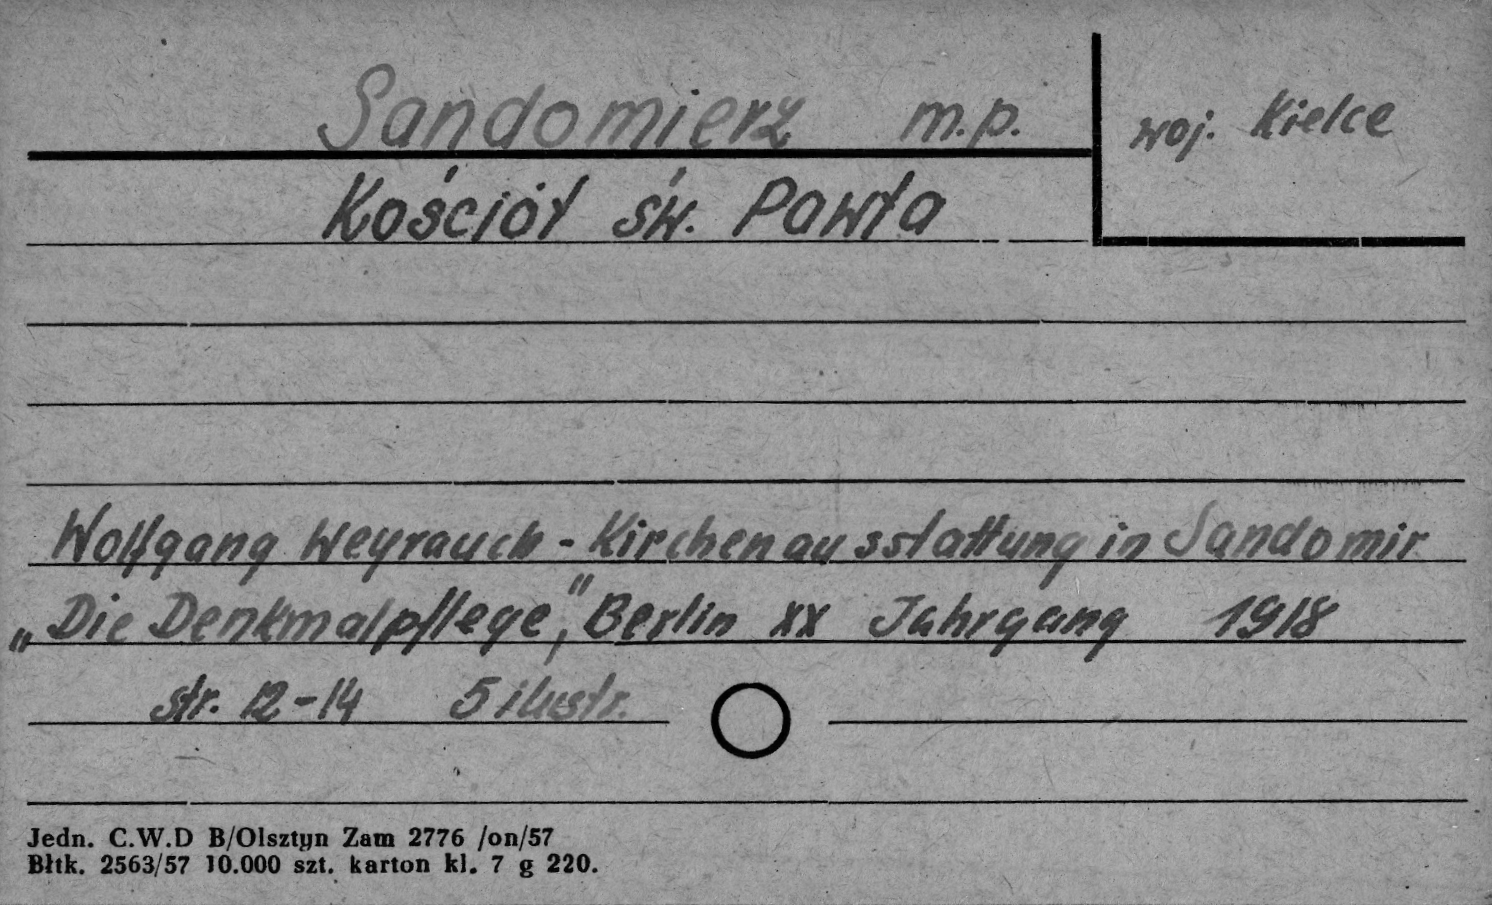 Sandomierz m.p.
woj. Kielce
Kościół św. Pawła
Wolfgang Weyrauch - Kirchenausstattung in Sandomir
„Die Denkmalpflege", Berlin XX Jahrgang 1918
str. 12-14 5 ilustr.
Jedn. C.W.D B/Olsztyn Zam 2776 /on/57
Błtk. 2563/57 10.000 szt. karton kl. 7 g 220.